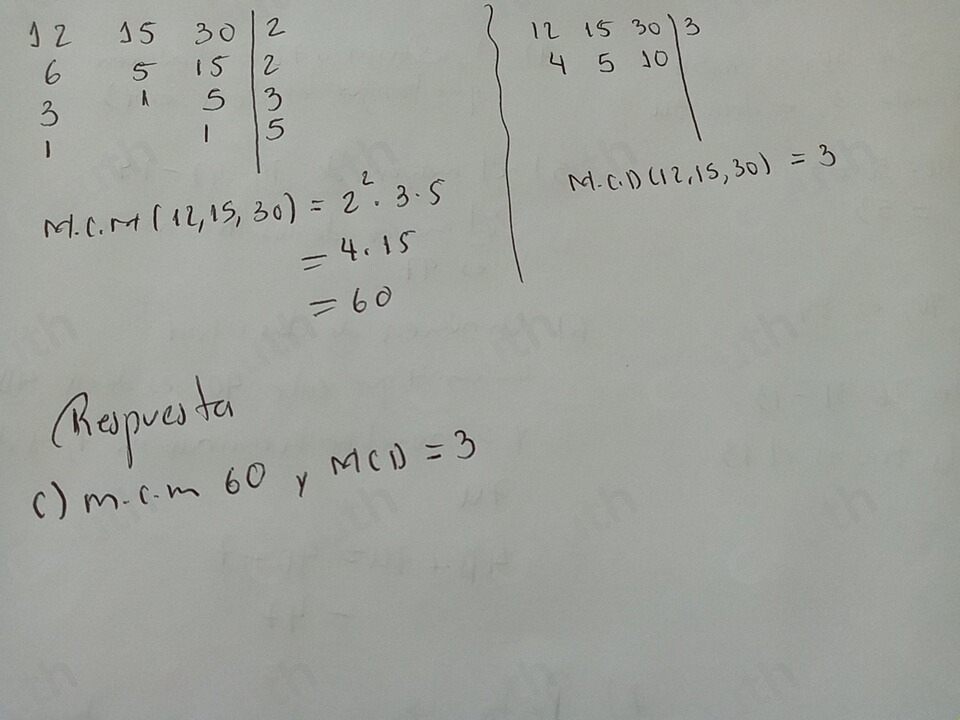 12 15 30 | 2
6 5 15 | 2
3 1 5 | 3
1 1 | 5
M.C.M (12, 15, 30) = 2². 3 . 5
= 4. 15
= 60
12 15 30 | 3
4 5 10 |
M.C.D (12, 15, 30) = 3
Respuesta
C) m.c.m 60 y MCD = 3